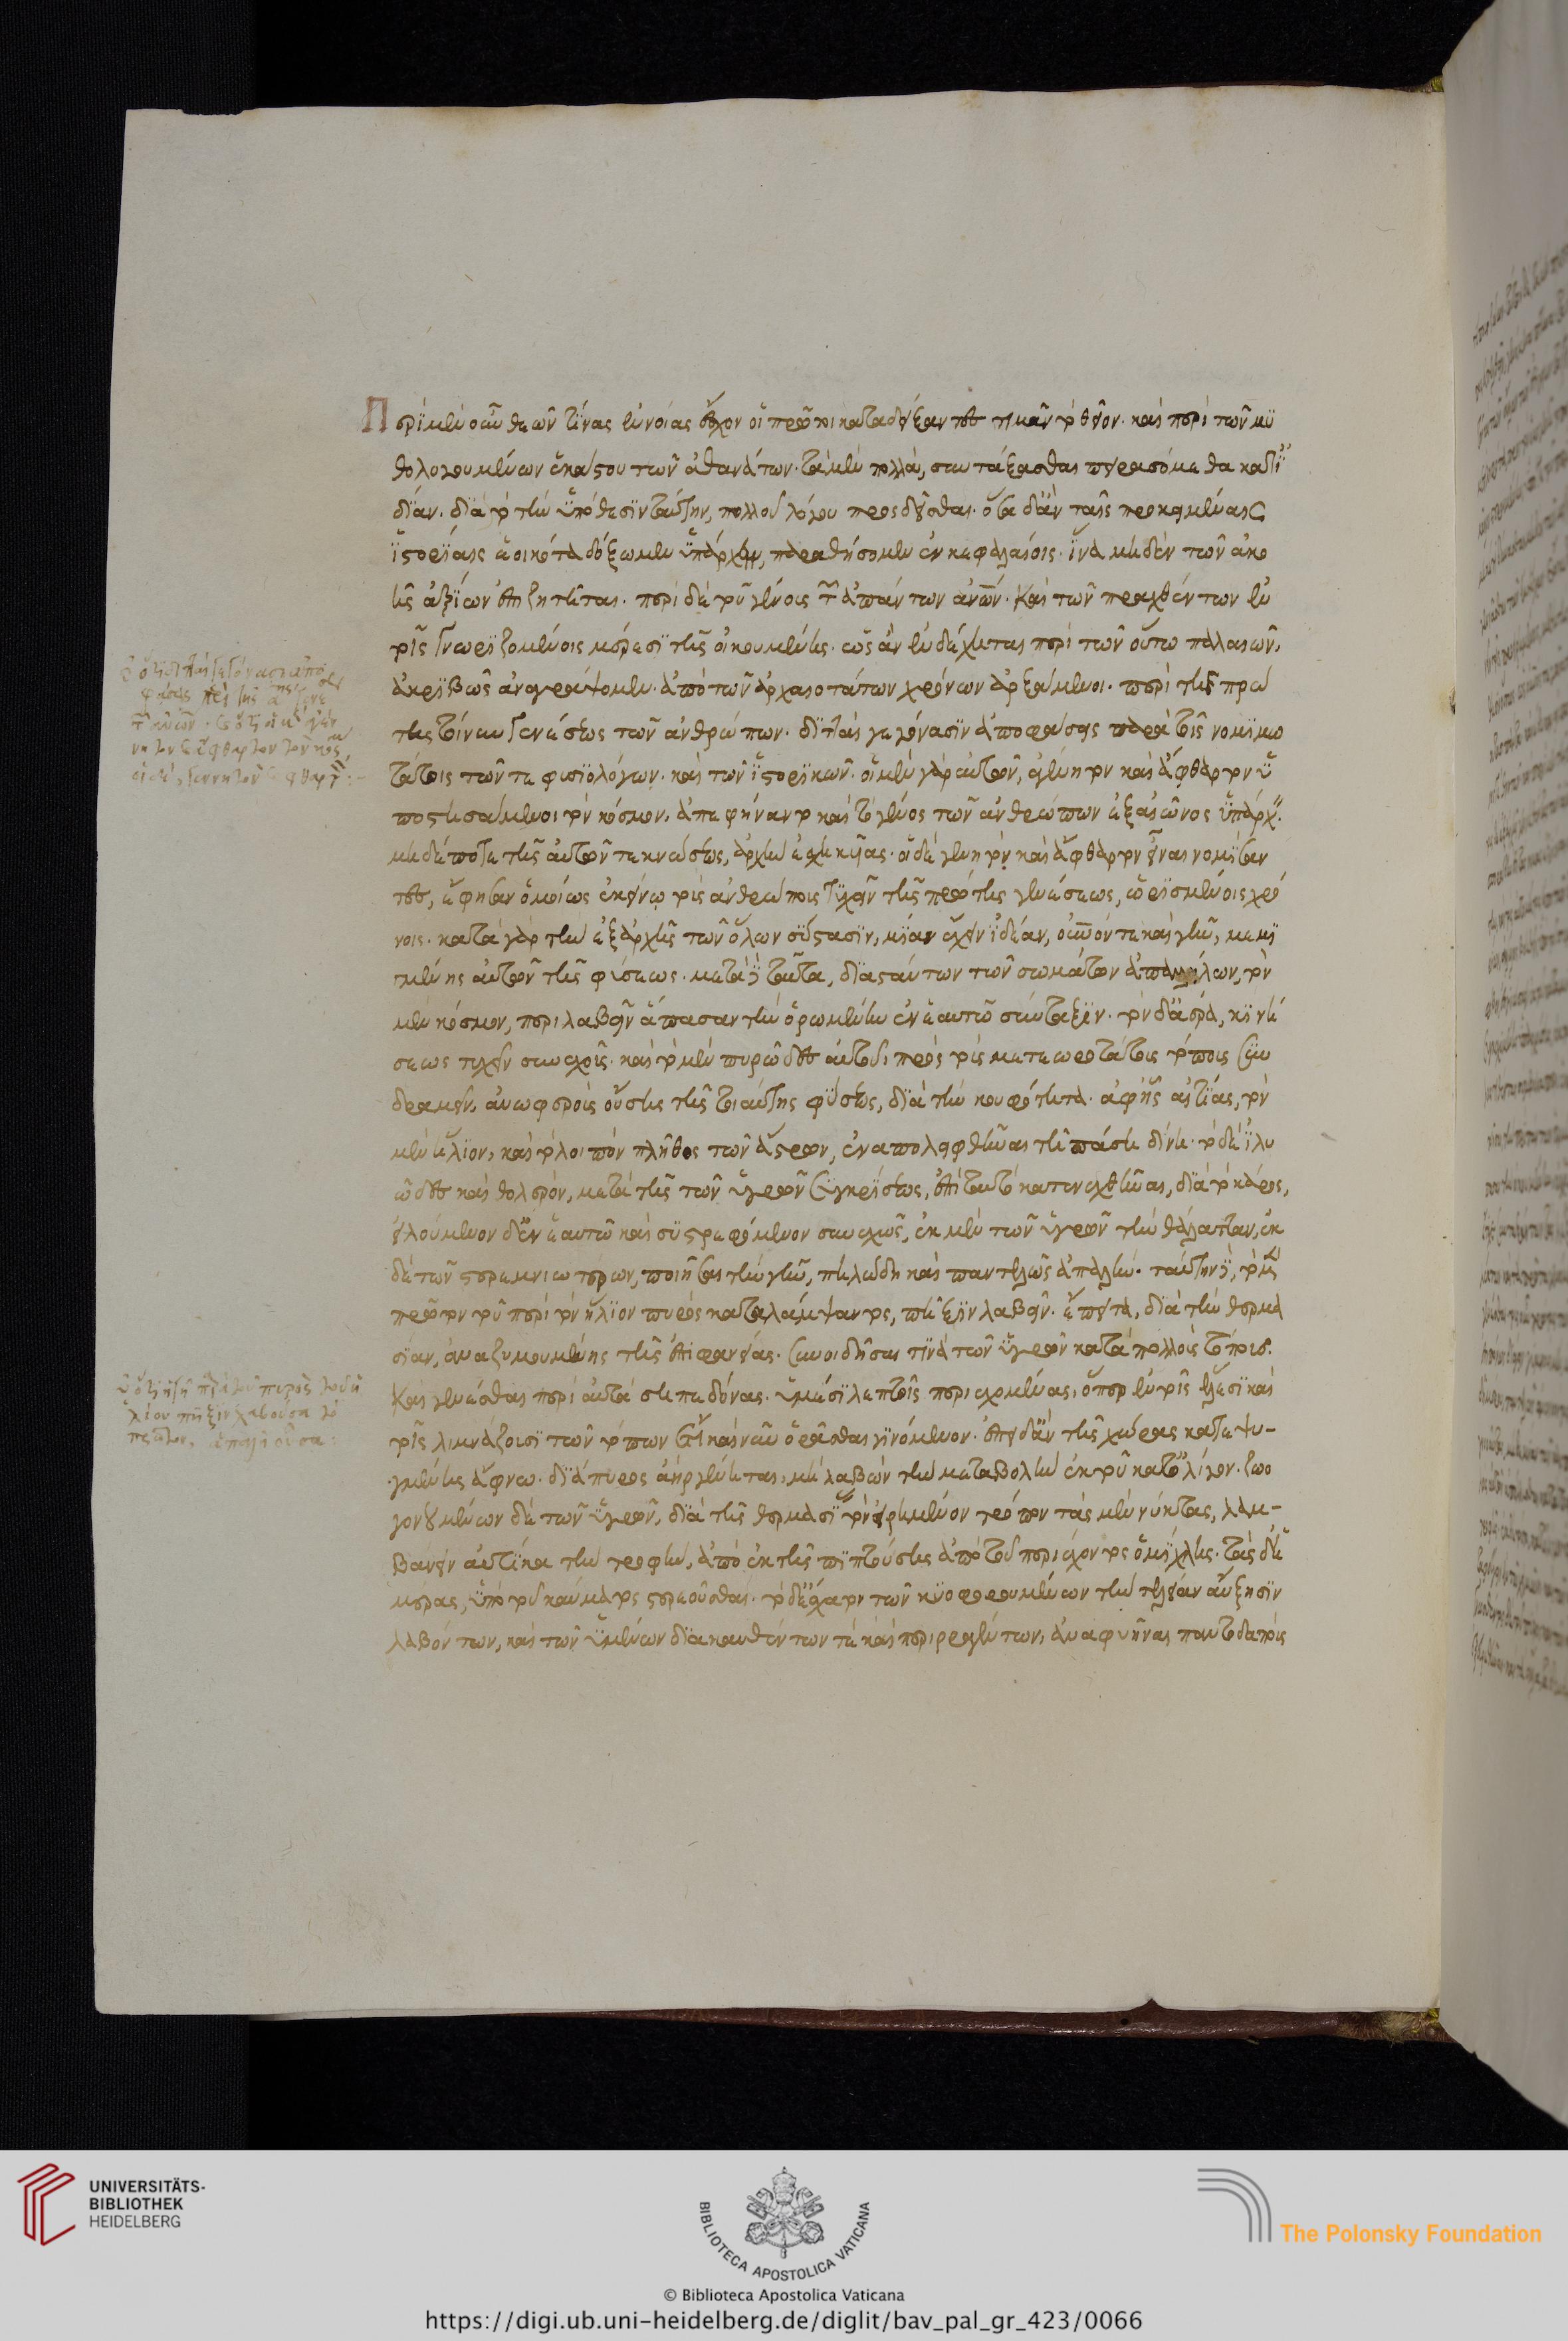 Περὶ μὲν οὖν θεῶν τίνας ἐννοίας ἔσχον οἱ πρῶτοι καταδείξαντες τιμᾶν τὸ θεῖον. καὶ περὶ τῶν μυ
θολογουμένων ἑκάστου τῶν ἀθανάτων. τὰ μὲν πολλὰ, συντάξασθαι πειρασόμεθα κατϊ
δίαν. διὰ τὸ τὴν ὑπόθεσιν ταύτην, πολλοῦ λόγου προσδεῖσθαι. ὅσα δ' ἂν ταῖς προκειμέναις
ἱστορίαις ἐοικότα δόξωμεν ὑπάρχειν, παραθήσομεν ἐν κεφαλαίοις. ἵνα μηδὲν τῶν ἀκο
ῆς ἀξίων ἐπιζητῆται. περὶ δὲ τοῦ γένους τῶν ἁπάντων ἀνων. καὶ τῶν πραχθέντων ἐν
τοῖς γνωριζομένοις μέρεσι τῆς οἰκουμένης. ὡς ἂν ἐνδέχηται περὶ τῶν οὕτω παλαιῶν,
ἀκριβῶς ἀναγράψομεν. ἀπὸ τῶν ἀρχαιοτάτων χρόνων ἀρξάμενοι. περὶ τῆς πρώ
της τοίνυν γενέσεως τῶν ἀνθρώπων. διτταὶ γεγόνασιν ἀποφάσεις παρὰ τοῖς νομιμω
τάτοις τῶν τε φυσιολόγων. καὶ τῶν ἱστορικῶν. οἱ μὲν γὰρ αὐτῶν, ἀγένητον καὶ ἄφθαρτον ὑ
ποστησάμενοι τὸν κόσμον, ἀπεφήναντο καὶ τὸ γένος τῶν ἀνθρώπων ἐξ αἰῶνος ὑπάρχειν.
μηδέποτε τῆς αὐτῶν τεκνώσεως, ἀρχὴν ἐσχηκυίας. οἱ δὲ γενητὸν καὶ ἄφθαρτον εἶναι νομίσαν
τες, ἔφησαν ὁμοίως ἐκείνῳ τοὺς ἀνθρώπους τυχεῖν τῆς πρώτης γενέσεως, ὡρισμένοις χρό
νοις. κατὰ γὰρ τὴν ἐξ ἀρχῆς τῶν ὅλων σύστασιν, μίαν ἔχειν ἰδέαν, οὐνόν τε καὶ γῆν, μεμι
γμένης αὐτῶν τῆς φύσεως. μετὰ δὲ ταῦτα, διαστάντων τῶν σωμάτων ἀπ' ἀλλήλων, τὸν
μὲν κόσμον, περιλαβεῖν ἅπασαν τὴν ὁρωμένην ἐν ἑαυτῷ σύνταξιν. τὸν δ' ἀέρα, κινή
σεως τυχεῖν συνεχοῦς. καὶ τὸ μὲν πυρῶδες αὐτοῦ, πρὸς τοὺς μετεωροτάτους τόπους συν
δραμεῖν. ἀνωφεροῦς οὔσης τῆς τοιαύτης φύσεως, διὰ τὴν κουφότητα. ἀφ' ἧς αἰτίας, τὸν
μὲν ἥλιον, καὶ τὸ λοιπὸν πλῆθος τῶν ἄστρων, ἐναποληφθῆναι τῇ πάσῃ δίνῃ. τὸ δὲ ἰλυ
ῶδες καὶ θολερὸν, μετὰ τῆς τῶν ὑγρῶν συγκρίσεως, ἐπὶ ταυτὸ κατενεχθῆναι, διὰ τὸ βάρος,
εἱλούμενον δ' ἐν ἑαυτῷ καὶ συστρεφόμενον συνεχῶς, ἐκ μὲν τῶν ὑγρῶν τὴν θάλατταν, ἐκ
δὲ τῶν στερεμνιωτέρων, ποιῆσαι τὴν γῆν, πηλώδη καὶ παντελῶς ἁπαλήν. ταύτην δὲ, τὸ μὲν
πρῶτον τοῦ περὶ τὸν ἥλιον πυρὸς καταλάμψαντος, πῆξιν λαβεῖν. ἔπειτα, διὰ τὴν θερμα
σίαν, ἀναζυμουμένης τῆς ἐπιφανείας. συνοιδῆσαί τινα τῶν ὑγρῶν κατὰ πολλοὺς τόπους.
καὶ γενέσθαι περὶ αὐτὰ σηπεδόνας. ὑμέσι λεπτοῖς περιεχομένας, ὅπερ ἐν τοῖς ἕλεσι καὶ
τοῖς λιμνάζουσι τῶν τόπων ἔτι καὶ νῦν ὁρᾶσθαι γινόμενον. ἐπειδὰν τῆς χώρας κατεψυ-
γμένης ἄφνω. διάπυρος ἀὴρ γένηται, μὴ λαβὼν τὴν μεταβολὴν ἐκ τοῦ κατολίγον. ζωο
γονουμένων δὲ τῶν ὑγρῶν, διὰ τῆς θερμασίας τὸν εἰρημένον τρόπον τὰς μὲν νύκτας, λαμ-
βάνειν αὐτίκα τὴν τροφὴν, ἀπὸ ἐκ τῆς πιπτούσης ἀπὸ τοῦ περιέχοντος ὁμίχλης. τὰς δὲ ἡ
μέρας, ὑπὸ τοῦ καύματος στερεοῦσθαι. τὸ δ' ἔσχατον τῶν κυοφορουμένων τὴν τελείαν αὔξησιν
λαβόντων, καὶ τῶν ὑμένων διακαυθέντων τε καὶ περιραγέντων, ἀναφυῆναι παντοδαποὺς
UNIVERSITÄTS-
BIBLIOTHEK
HEIDELBERG
BIBLIOTECA APOSTOLICA VATICANA
The Polonsky Foundation
© Biblioteca Apostolica Vaticana
https://digi.ub.uni-heidelberg.de/diglit/bav_pal_gr_423/0066